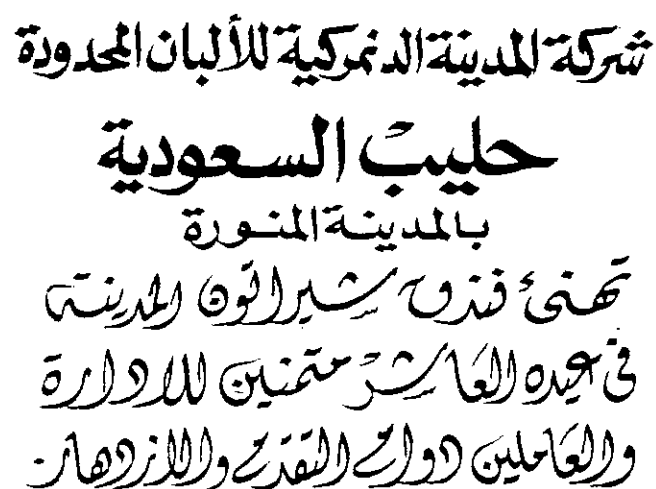 شركة المدينة الدنمركية للألبان المحدودة
حليب السعودية
بالمدينة المنورة
تهنئ فندق شيراتون المدينة
في عيده العاشر متمنين للادارة
والعاملين دوام التقدم والازدهار.